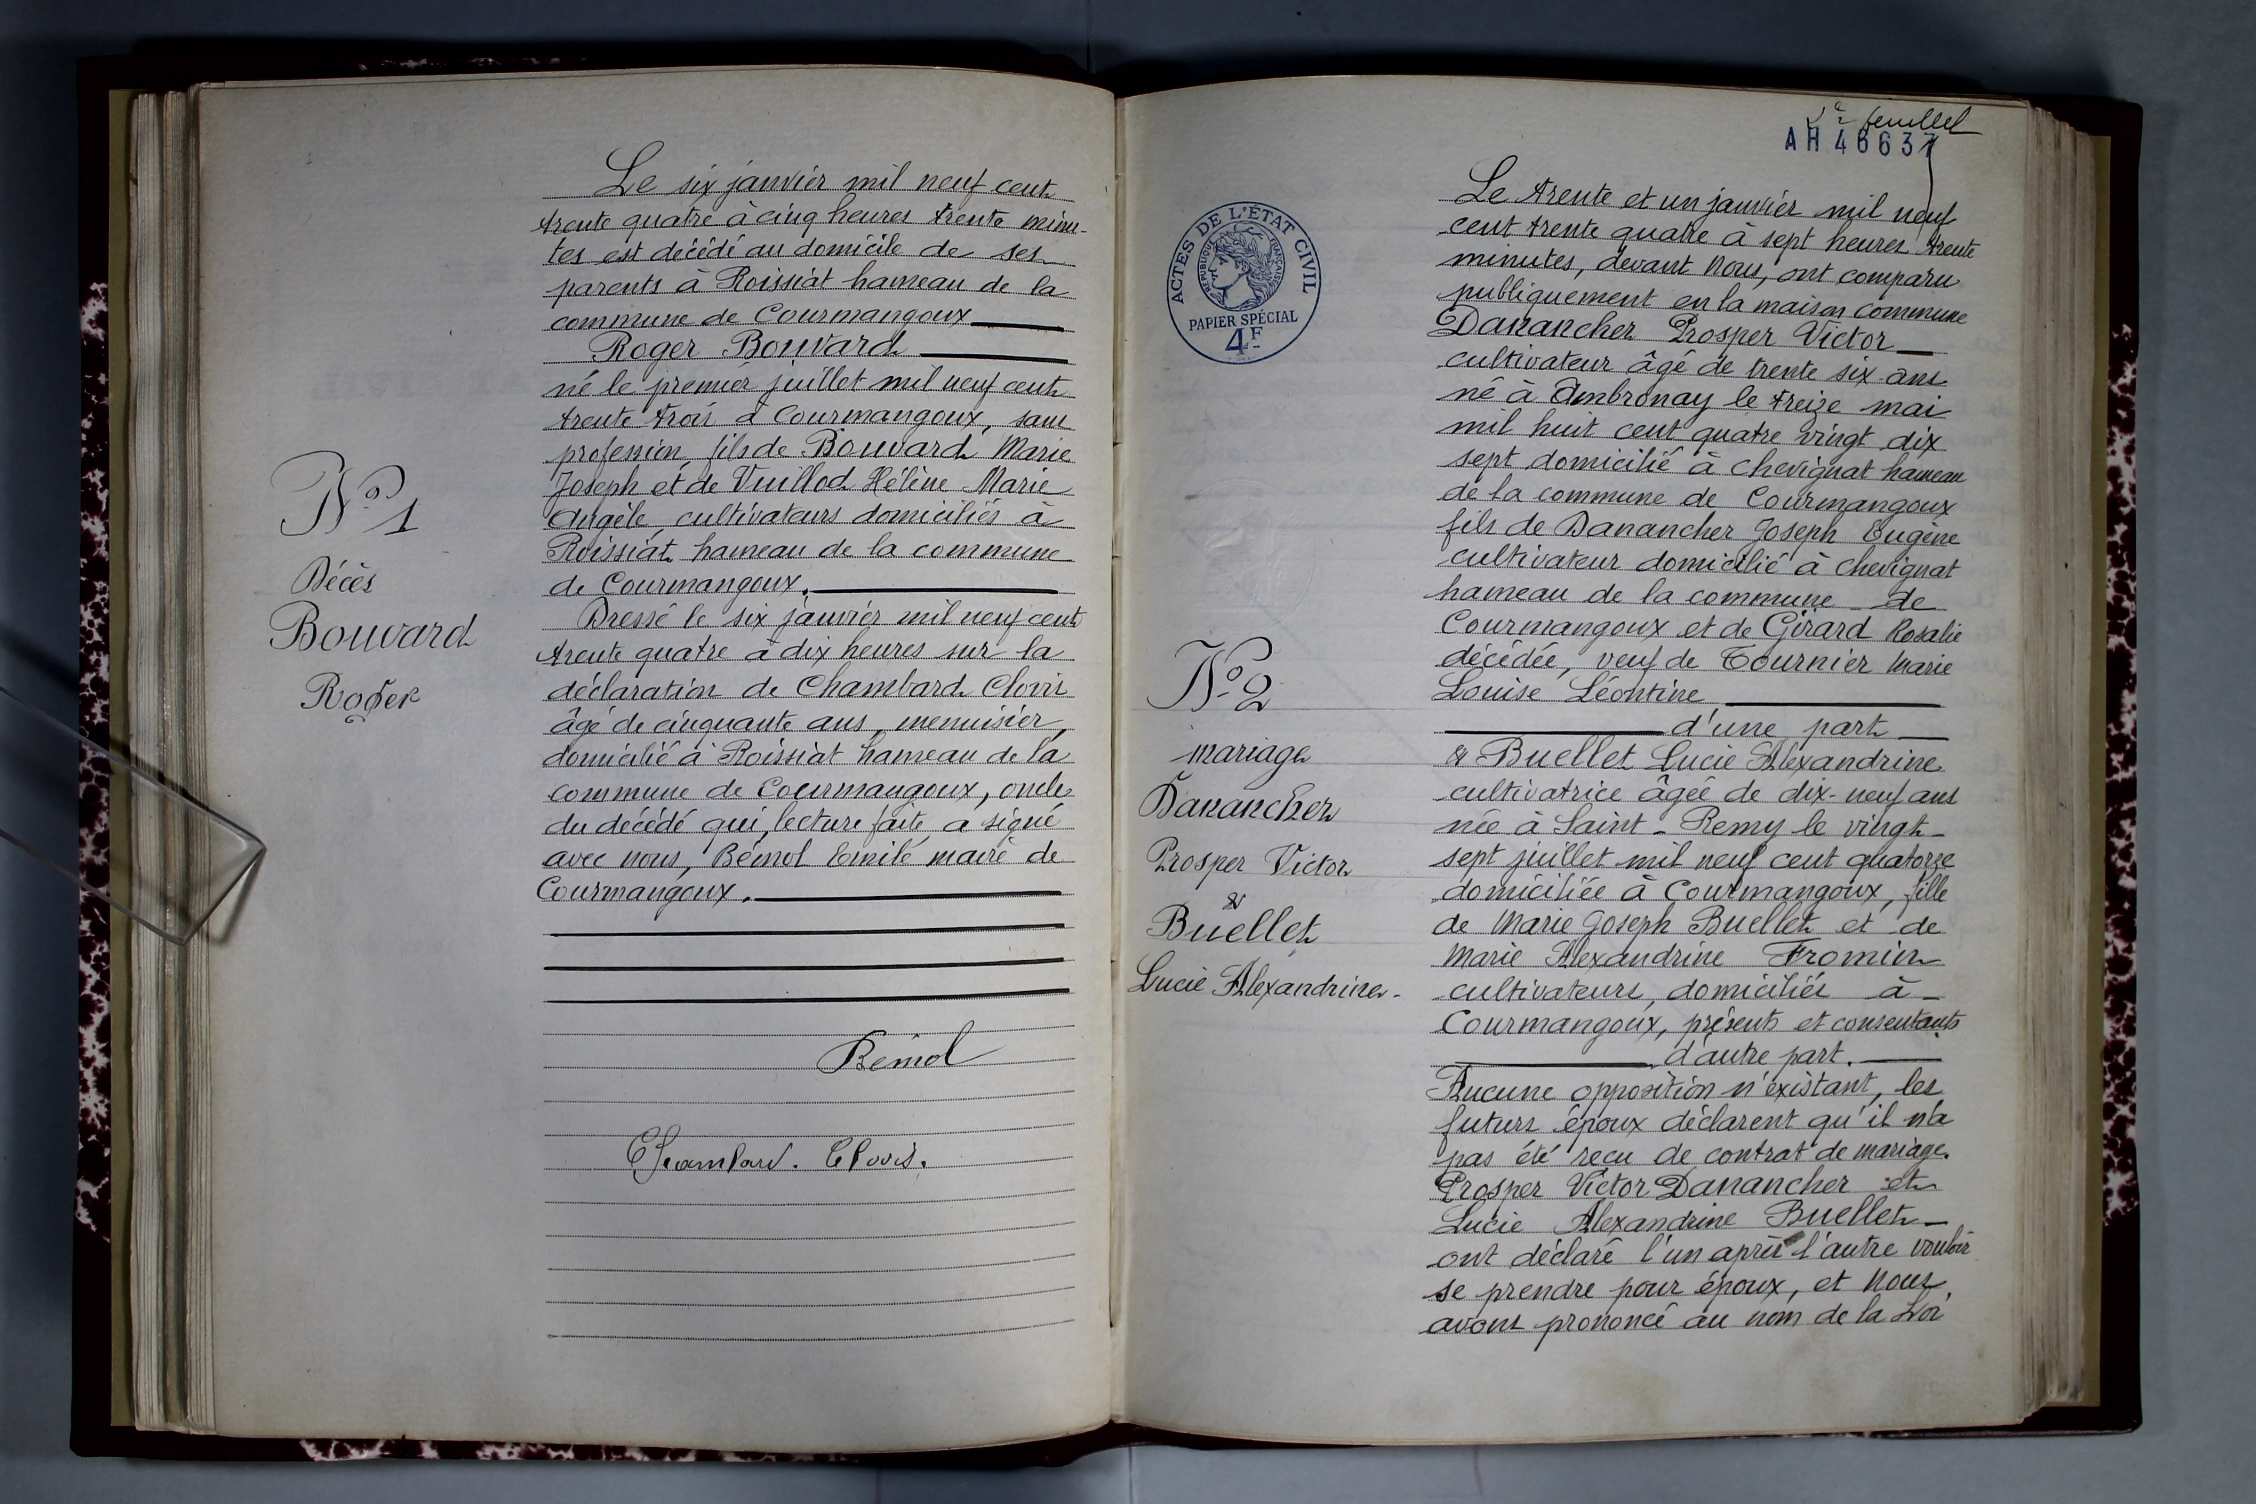 N° 1
Décès
Bouvard
Roger
Le six janvier mil neuf cent
trente quatre à cinq heures trente minu-
tes est décédé au domicile de ses
parents à Roissiat hameau de la
commune de Courmangoux
Roger Bouvard
né le premier juillet mil neuf cent
trente trois à Courmangoux, sans
profession, fils de Bouvard Marie
Joseph et de Vuillod Hélène Marie
Angèle cultivateurs domiciliés à
Roissiat hameau de la commune
de Courmangoux.
Dressé le six janvier mil neuf cent
trente quatre à dix heures sur la
déclaration de Chambard Clovis
âgé de cinquante ans, menuisier,
domicilié à Roissiat hameau de la
commune de Courmangoux, oncle
du décédé qui, lecture faite, a signé
avec nous, Bémol Emile maire de
Courmangoux.
Bémol
Chambard. Clovis.
feuillet
AH 46637
ACTES DE L'ÉTAT CIVIL
RÉPUBLIQUE FRANÇAISE
PAPIER SPÉCIAL
4F
N° 2
mariage
Danancher
Prosper Victor
&
Buellet
Lucie Alexandrine.
Le trente et un janvier mil neuf
cent trente quatre à sept heures trente
minutes, devant Nous, ont comparu
publiquement en la maison commune
Danancher Prosper Victor
cultivateur âgé de trente six ans
né à Ambronay le treize mai
mil huit cent quatre vingt dix
sept domicilié à Chevignat hameau
de la commune de Courmangoux
fils de Danancher Joseph Eugène
cultivateur domicilié à Chevignat
hameau de la commune de
Courmangoux et de Girard Rosalie
décédée, veuf de Tournier Marie
Louise Léontine
d'une part
& Buellet Lucie Alexandrine
cultivatrice âgée de dix-neuf ans
née à Saint-Remy le vingt-
sept juillet mil neuf cent quatorze
domiciliée à Courmangoux, fille
de Marie Joseph Buellet et de
Marie Alexandrine Fromier
cultivateurs, domiciliés à
Courmangoux, présents et consentants
d'autre part.
Aucune opposition n'existant, les
futurs époux déclarent qu'il n'a
pas été reçu de contrat de mariage.
Prosper Victor Danancher et
Lucie Alexandrine Buellet
ont déclaré l'un après l'autre vouloir
se prendre pour époux, et Nous,
avons prononcé au nom de la Loi